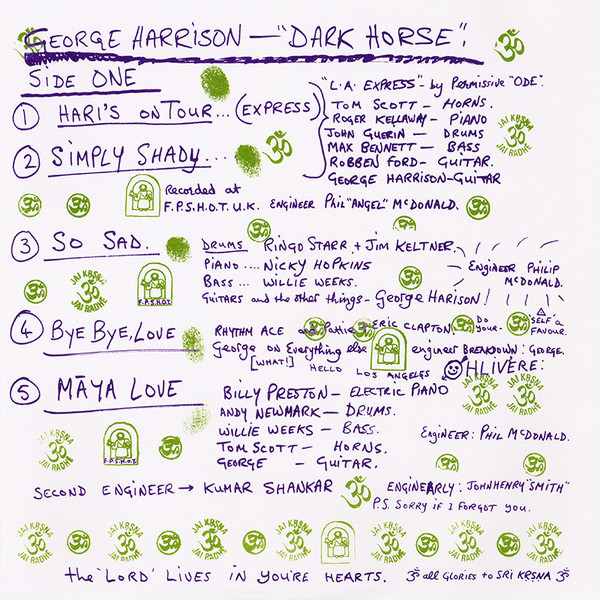 GEORGE HARRISON — "DARK HORSE".
SIDE ONE
① HARI'S ON TOUR... (EXPRESS)
"L.A. EXPRESS" - by Permissive "ODE".
TOM SCOTT — HORNS.
ROGER KELLAWAY — PIANO
JOHN GUERIN — DRUMS
MAX BENNETT — BASS
ROBBEN FORD — GUITAR.
GEORGE HARRISON — GUITAR
② SIMPLY SHADY...
Recorded at
F.P.S.H.O.T. U.K. ENGINEER PHIL "ANGEL" McDONALD.
JAI KRSNA
ॐ
JAI RADHE
③ SO SAD.
DRUMS RINGO STARR + JIM KELTNER.
PIANO .... NICKY HOPKINS
BASS ... WILLIE WEEKS.
GUITARS and the other things - GEORGE HARISON!
ENGINEER PHILIP
McDONALD.
JAI KRSNA
ॐ
JAI RADHE
F.P.S.H.O.T.
④ BYE BYE, LOVE
RHYTHM ACE and Pattie + ERIC CLAPTON
DO YOUR- SELF A FAVOUR.
George on Everything else
[WHAT!] HELLO LOS ANGELES
engineer BREAKDOWN: GEORGE.
OHLIVERE:
⑤ MĀYA LOVE
BILLY PRESTON — ELECTRIC PIANO
ANDY NEWMARK — DRUMS.
WILLIE WEEKS — BASS.
TOM SCOTT — HORNS.
GEORGE — GUITAR.
ENGINEER: PHIL McDONALD.
JAI KRSNA
ॐ
JAI RADHE
F.P.S.H.O.T.
SECOND ENGINEER → KUMAR SHANKAR
ENGINEEARLY: JOHNHENRY "SMITH"
P.S. SORRY IF I FORGOT YOU.
JAI KRSNA ॐ JAI RADHE
the 'LORD' LIVES IN YOU'RE HEARTS. ॐ all GLORIES to SRI KRSNA ॐ